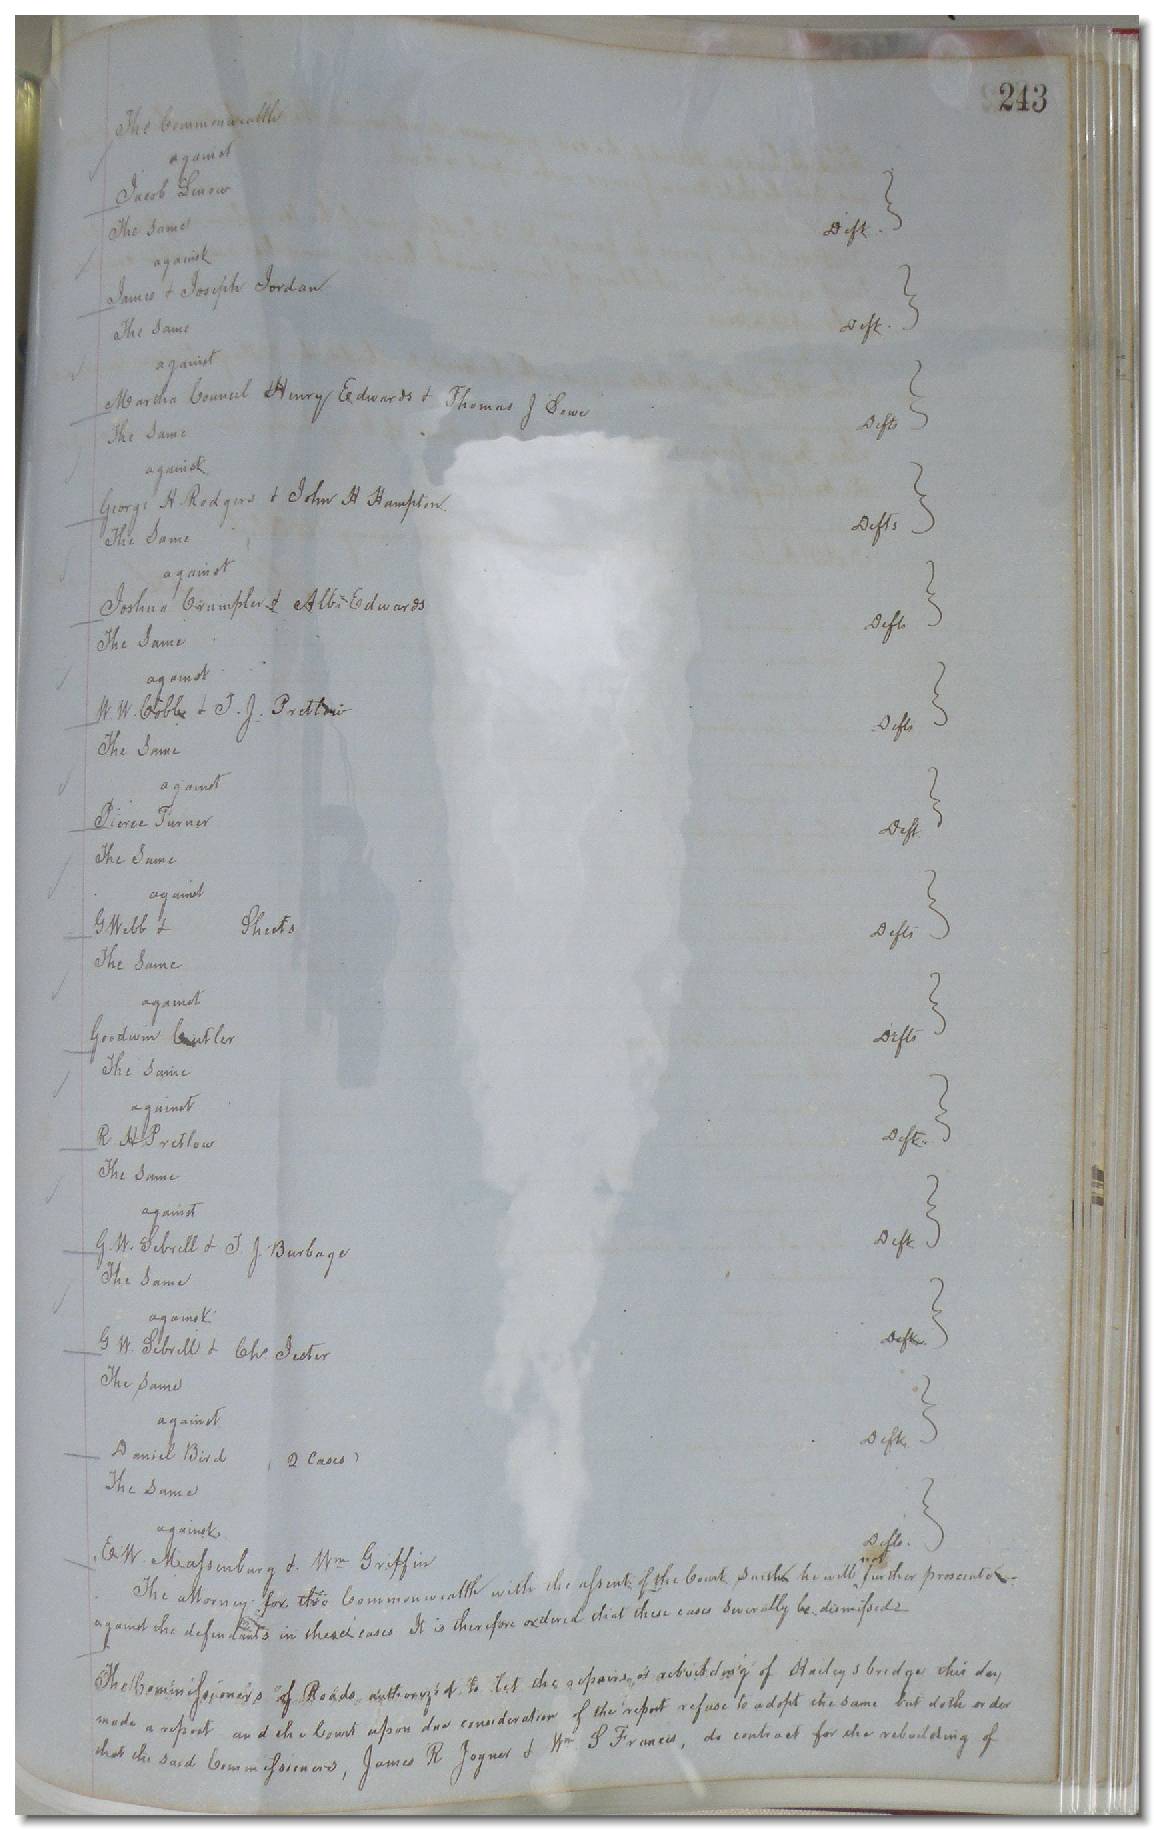 243
The Commonwealth
against
Jacob Denson Deft.
The Same
against
James & Joseph Jordan Deft.
The Same
against
Martha Council Henry Edwards & Thomas J Defts
The Same
against
George H Rodgers & John H Hampton. Defts
The Same
against
Joshua Crumpler & Edwards Defts
The Same
against
W W Cobb & J. J. Pretlow Defts
The Same
against
Pierce Turner Deft
The Same
against
G Webb & Sheets Defts
The Same
against
Goodwin Butler Defts
The Same
against
R H Pretlow Deft.
The Same
against
G. W. Sebrell & J J Burbage Deft
The Same
against
G W. Sebrell & Jester Deft
The Same
against
Daniel Bird (2 Cases) Deft.
The Same
against.
E. W. Massenburg & Wm Griffin Defts.
The attorney for the Commonwealth with the assent of the Court saith he will not further prosecute
against the defendants in these cases It is therefore ordered that these cases severally be dismissed
The Commissioners of Roads, authorized to let the repairs, or rebuilding of bridge this day
made a report and the Court upon due consideration of the report refuse to adopt the same but doth order
that the said Commissioners, James R Joyner & Wm S Francis, do contract for the rebuilding of